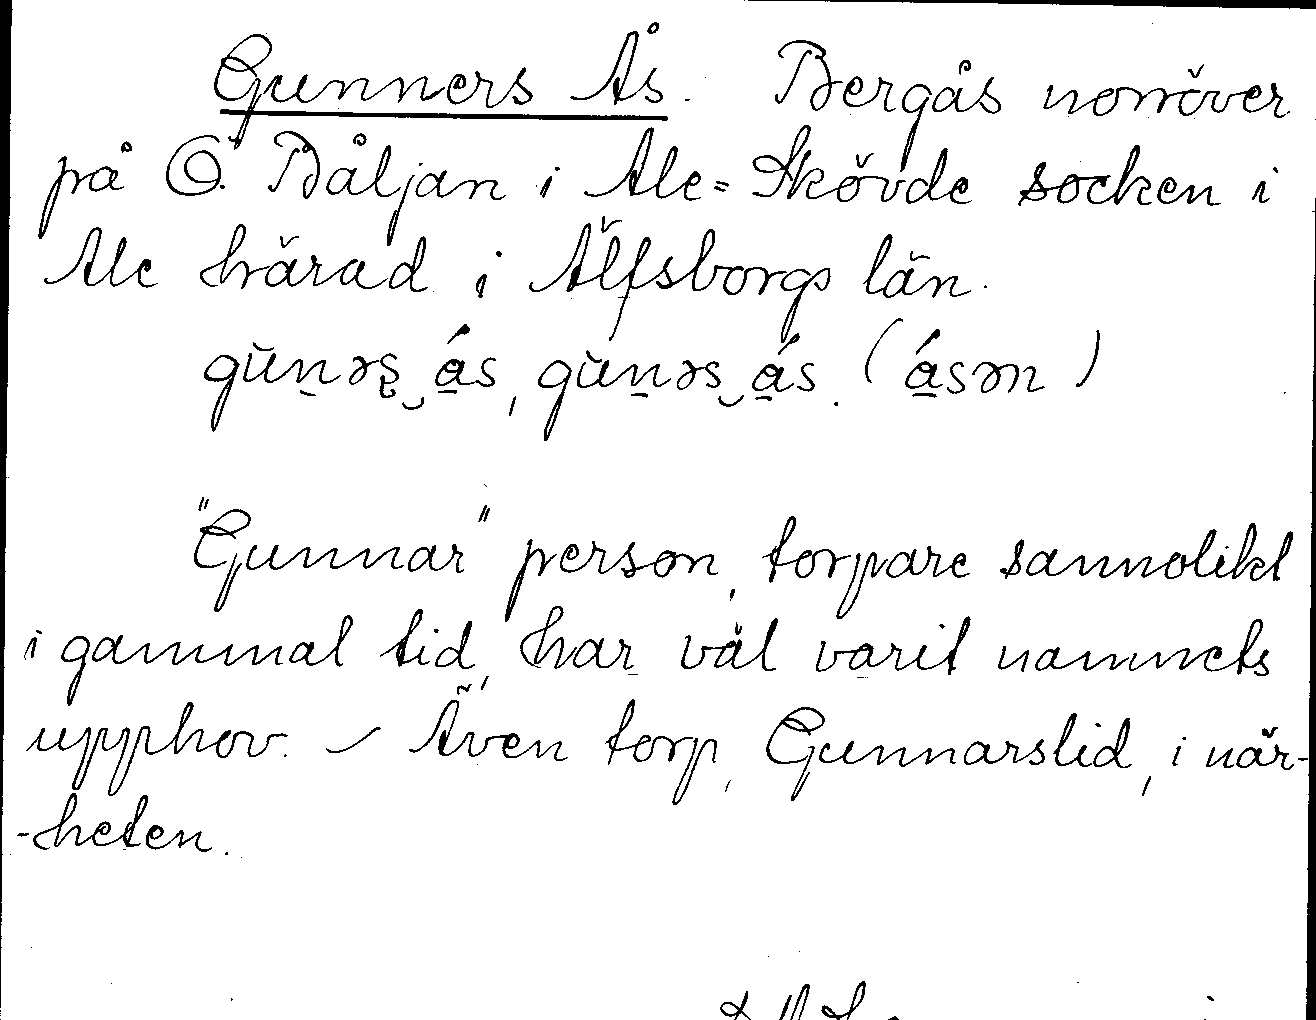 Gunners Ås. Bergås norröver
på Ö. Båljan i Ale-Skövde socken i
Ale härad i Älfsborgs län.
gùn̲əs̨‿á̲s, gùn̲əs‿á̲s. (á̲sən)
"Gunnar" person, torpare sannolikt
i gammal tid, har väl varit namnets
upphov. – Även torp, Gunnarslid, i när-
-heten.